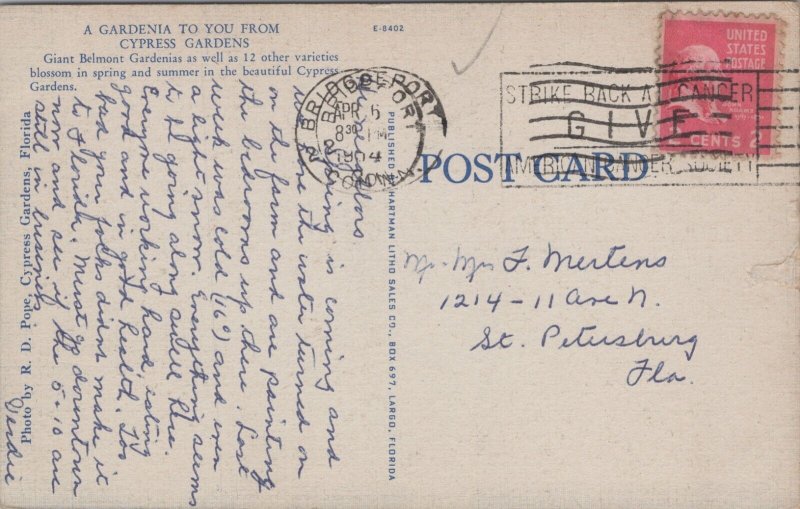 A GARDENIA TO YOU FROM
CYPRESS GARDENS
Giant Belmont Gardenias as well as 12 other varieties
blossom in spring and summer in the beautiful Cypress
Gardens.
E-8402
Photo by R. D. Pope, Cypress Gardens, Florida
Spring is coming and
we have the water turned on
on the farm and are painting
the bedrooms up there. Last
week was cold (16°) and even
a light snow. Everything seems
to be going along swell here.
Everyone working hard, eating
good and in good health. Too
bad your folks didnt make it
to Florida. Must go downtown
now and see if the 5 + 10 are
still in business
PUBLISHED HARTMAN LITHO SALES CO., BOX 697, LARGO, FLORIDA
BRIDGEPORT
APR 6
8 30 PM
CONN.
STRIKE BACK AT CANCER
GIVE
AMERICAN CANCER SOCIETY
UNITED
STATES
POSTAGE
2 CENTS 2
POST CARD
Mr. Mrs F. Mertens
1214-11 Ave N.
St. Petersburg
Fla.